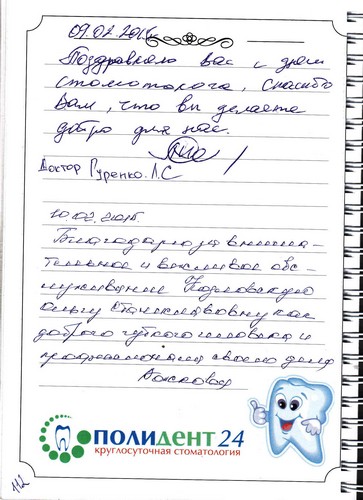 09.02.2015.
Поздравляю вас с днем
стоматолога, спасибо
вам, что вы делаете
добро для нас.
Доктор Гуренко Л.С
10.02.2015
Благодарю за внима-
тельное и вежливое обс-
луживание Козловскую
Ольгу Станиславовну как
доброго чуткого человека и
профессионала своего дела
ПОЛИДЕНТ 24
круглосуточная стоматология
112